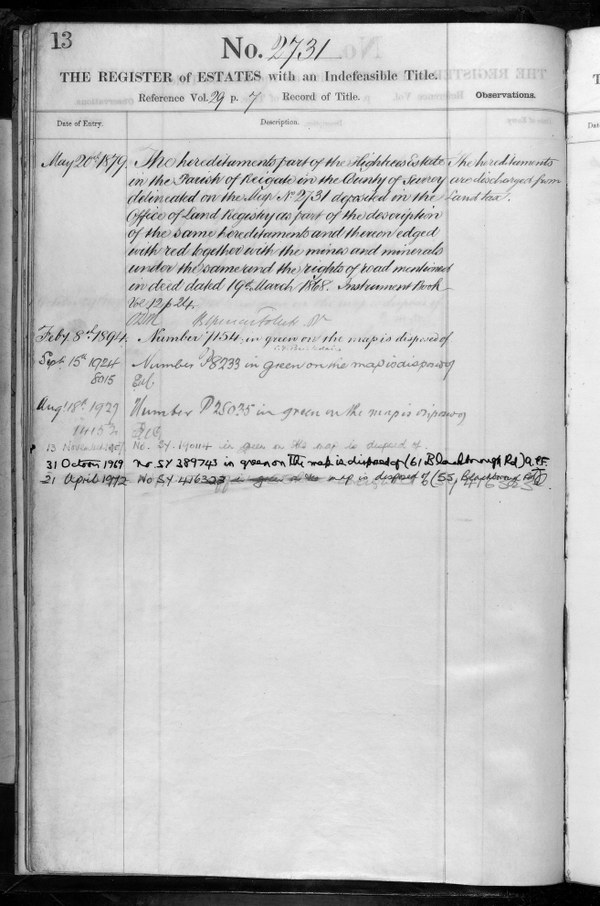 13
No. 2731
THE REGISTER of ESTATES with an Indefeasible Title.
Reference Vol. 29 p. 7 Record of Title.
Observations.
Date of Entry.
Description.
May 20th 1879
The hereditaments part of the Hightrees Estate
in the Parish of Reigate in the County of Surrey
delineated on the Map No 2731 deposited in the
Office of Land Registry as part of the description
of the same hereditaments and thereon edged
with red together with the mines and minerals
under the same and the rights of road mentioned
in deed dated 19th March 1868. Instrument Book
Vol. 12 p 24.
The hereditaments
are discharged from
Land tax.
Feby 8th 1894. Number 7154 in green on the map is disposed of
Sept. 15th 1924 Number P8233 in green on the map is disposed of
8015
Augt 18th 1927 Number P25035 in green on the map is disposed of
13 in green on the map is disposed of.
31 October 1969 No SY 389743 in green on the map is disposed of (61 Blackborough Rd)
21 April 1972 No SY 416323 in green on the map is disposed of (55, Blackborough Rd)